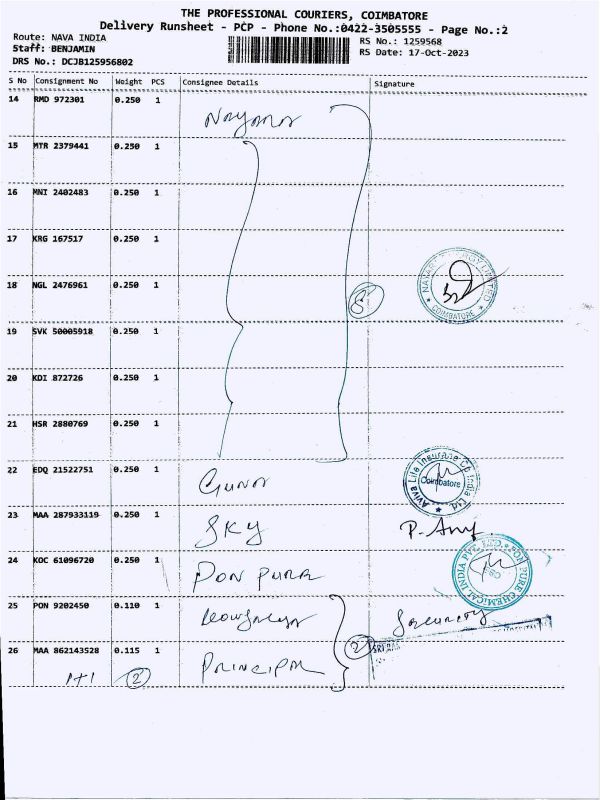 THE PROFESSIONAL COURIERS, COIMBATORE
Delivery Runsheet - PCP - Phone No.:0422-3505555 - Page No.:2
Route: NAVA INDIA
RS No.: 1259568
Staff: BENJAMIN
RS Date: 17-Oct-2023
DRS No.: DCJB125956802
S No Consignment No Weight PCS Consignee Details Signature
14 RMD 972301 0.250 1
15 MTR 2379441 0.250 1
16 MNI 2402483 0.250 1
17 KRG 167517 0.250 1
18 NGL 2476961 0.250 1 8 NAYARA ENERGY LIMITED COIMBATORE
19 SVK 50005918 0.250 1
20 KDI 872726 0.250 1
21 HSR 2880769 0.250 1
22 EDQ 21522751 0.250 1 Aviva Life Insurance Co India Ltd. Coimbatore
23 MAA 287933119 0.250 1 SKY
24 KOC 61096720 0.250 1 PON PURE PON PURE CHEMICAL INDIA PVT. LTD.
25 PON 9202450 0.110 1 Security
26 MAA 862143528 0.115 1 Principal 2
1+1 2